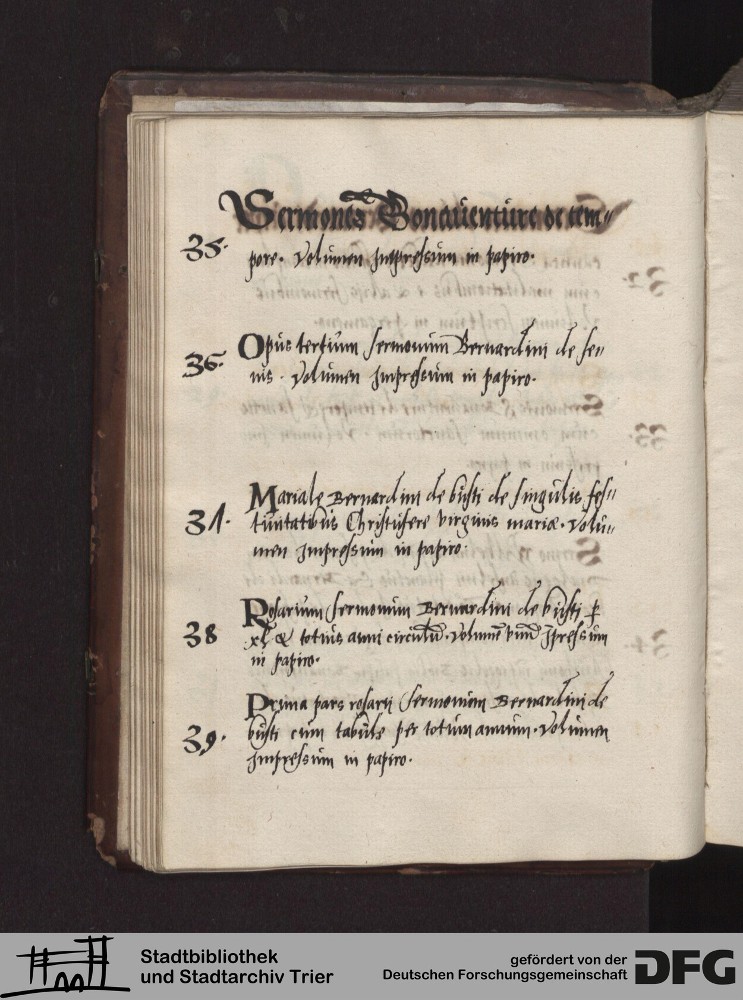 Sermones Bonauenture de tem=
35. pore. Volumen Impressum in papiro.
Opus tertium sermonum Bernardini de se=
36. nis. Volumen Impressum in papiro.
Mariale Bernardini de busti de singulis fes=
37. tiuitatibus Christifere virginis mariae. Volu=
men Impressum in papiro.
Rosarium sermonum Bernardini de busti p
38 xl & totius anni circulū. Volumē Impressum
in papiro.
Prima pars rosarij sermonum Bernardini de
39. busti cum tabula per totum annum. Volumen
Impressum in papiro.
Stadtbibliothek
und Stadtarchiv Trier
gefördert von der
Deutschen Forschungsgemeinschaft
DFG